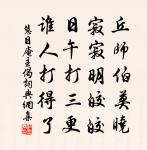 丘師伯莫曉
寂寂明皎皎
日午打三更
誰人打得了
慧目庵主偈詞典網集